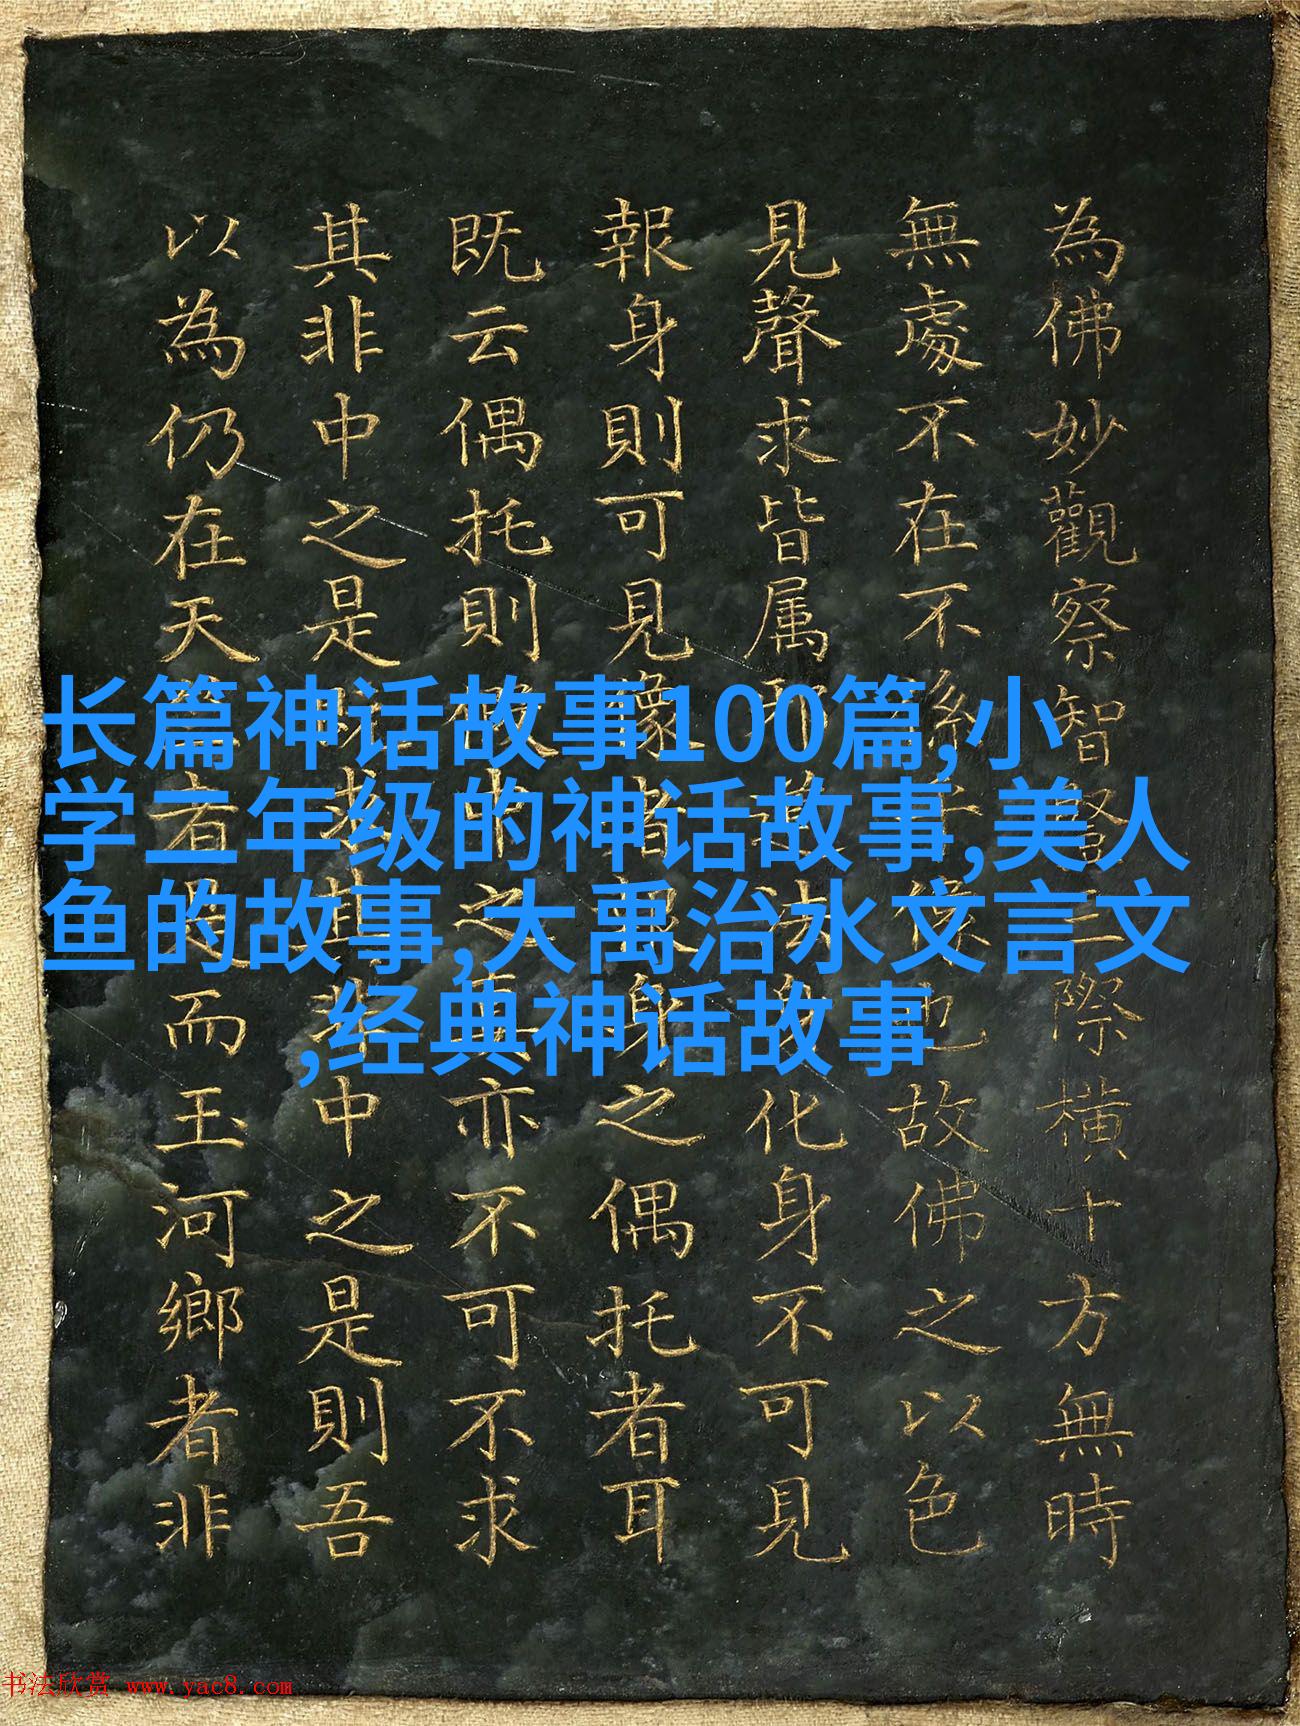 為佛妙觀察智三際橫十方無時
無處不在不也故佛之以色
見聲求皆属邪道法身化身不可見
報身則可見像者報身之偶托者耳
既云偶托則彼中之真亦不可不求
其非中之是則求其非中之是則吾
以為仍在天者而玉河鄉者非
长篇神话故事100篇,小
学二年级的神话故事,美人
鱼的故事,大禹治水文言文
,经典神话故事
书法欣赏 www.yac8.com